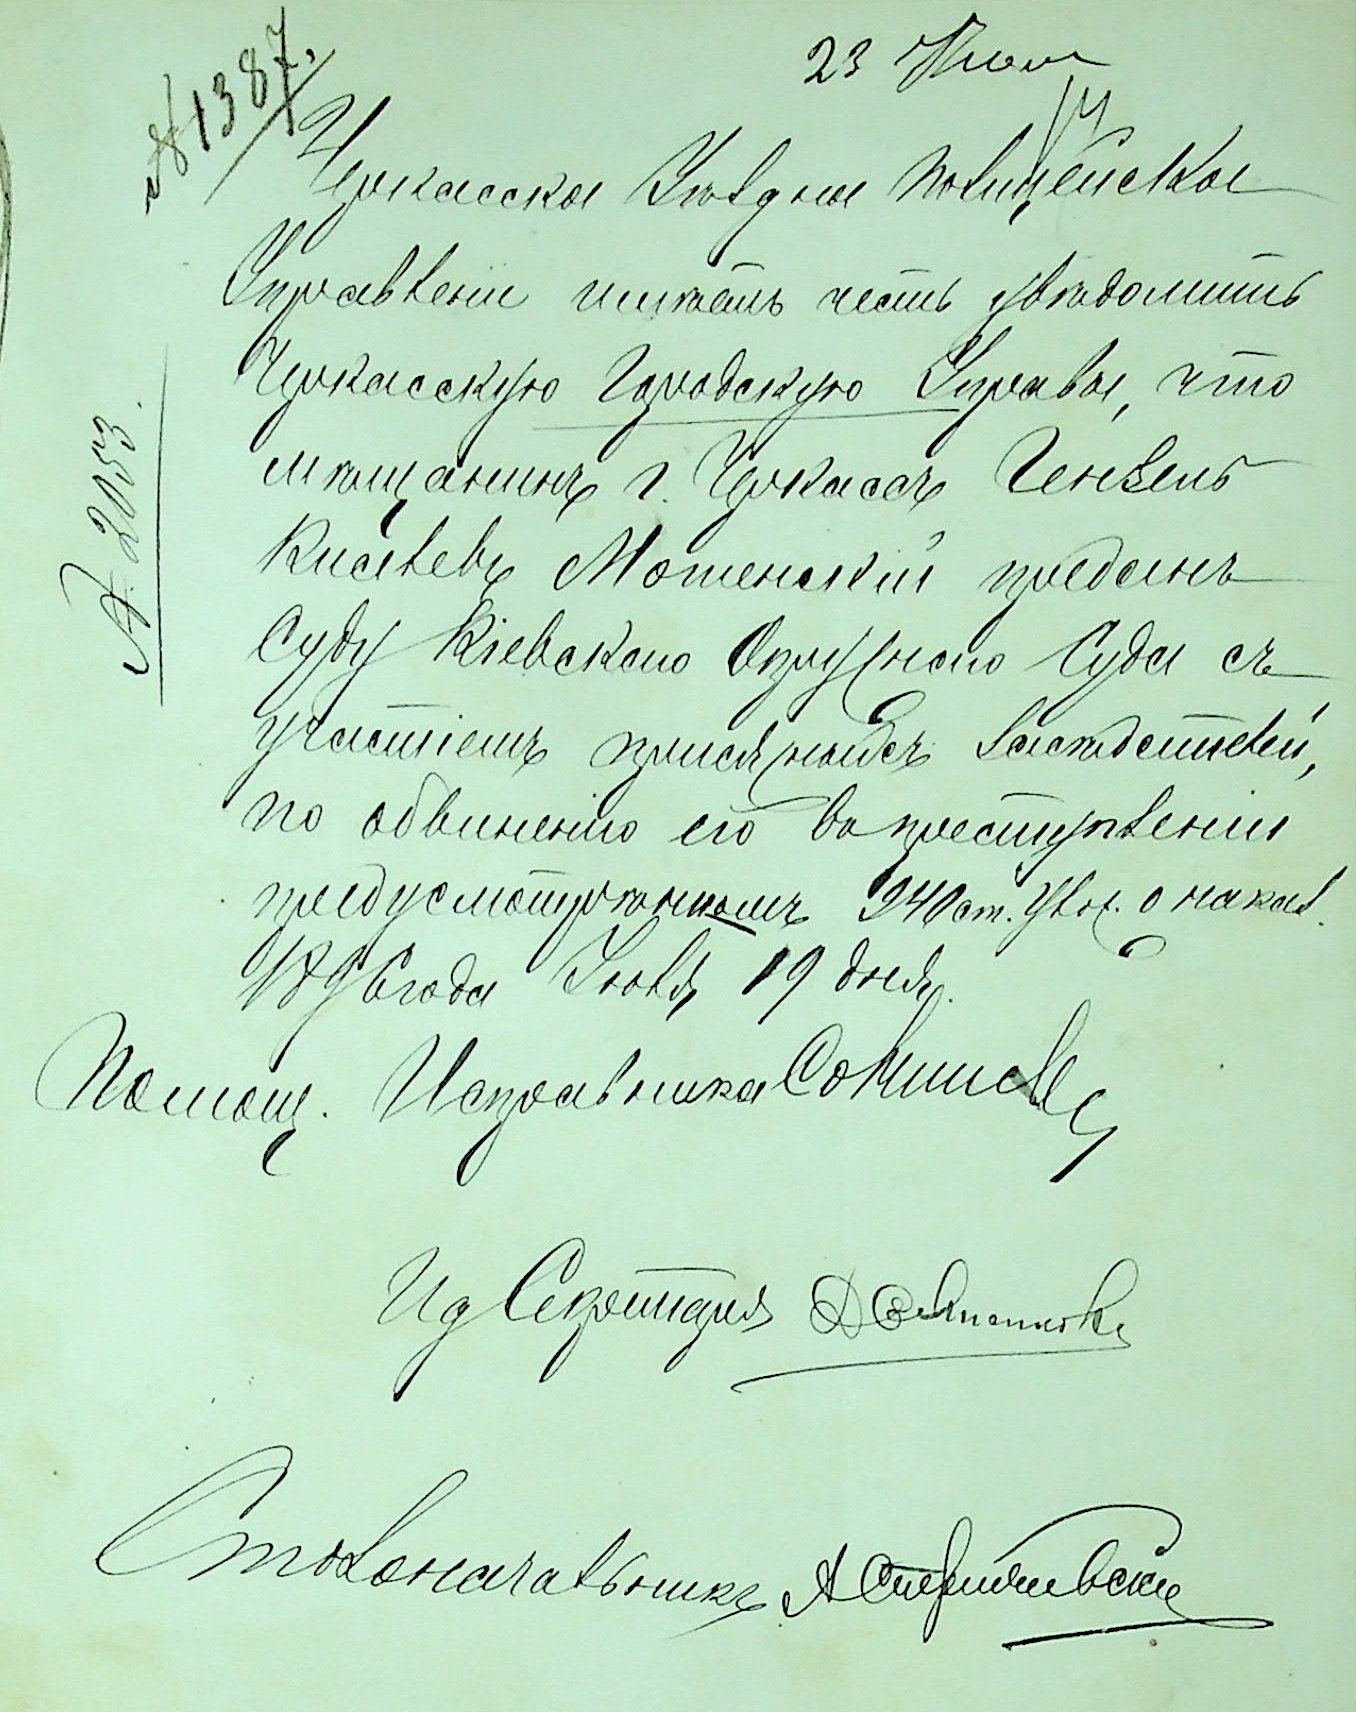 № 1387.
23 Июля
Черкасское Уѣздное Полицейское
Управленіе имѣетъ честь увѣдомить
Черкасскую Городскую Управу, что
мѣщанинъ г. Черкассъ Гензель
Киселевъ Мошенскій преданъ
Суду Кіевскаго Окружнаго Суда съ
участіемъ присяжныхъ засѣдателей,
по обвиненію его въ преступленіи
предусмотрѣнномъ 940 ст. Улож. о наказ.
1896 года Іюля 19 дня.
Помощ. Исправника
Ид Секретаря
Столоначальникъ
№ 2053.